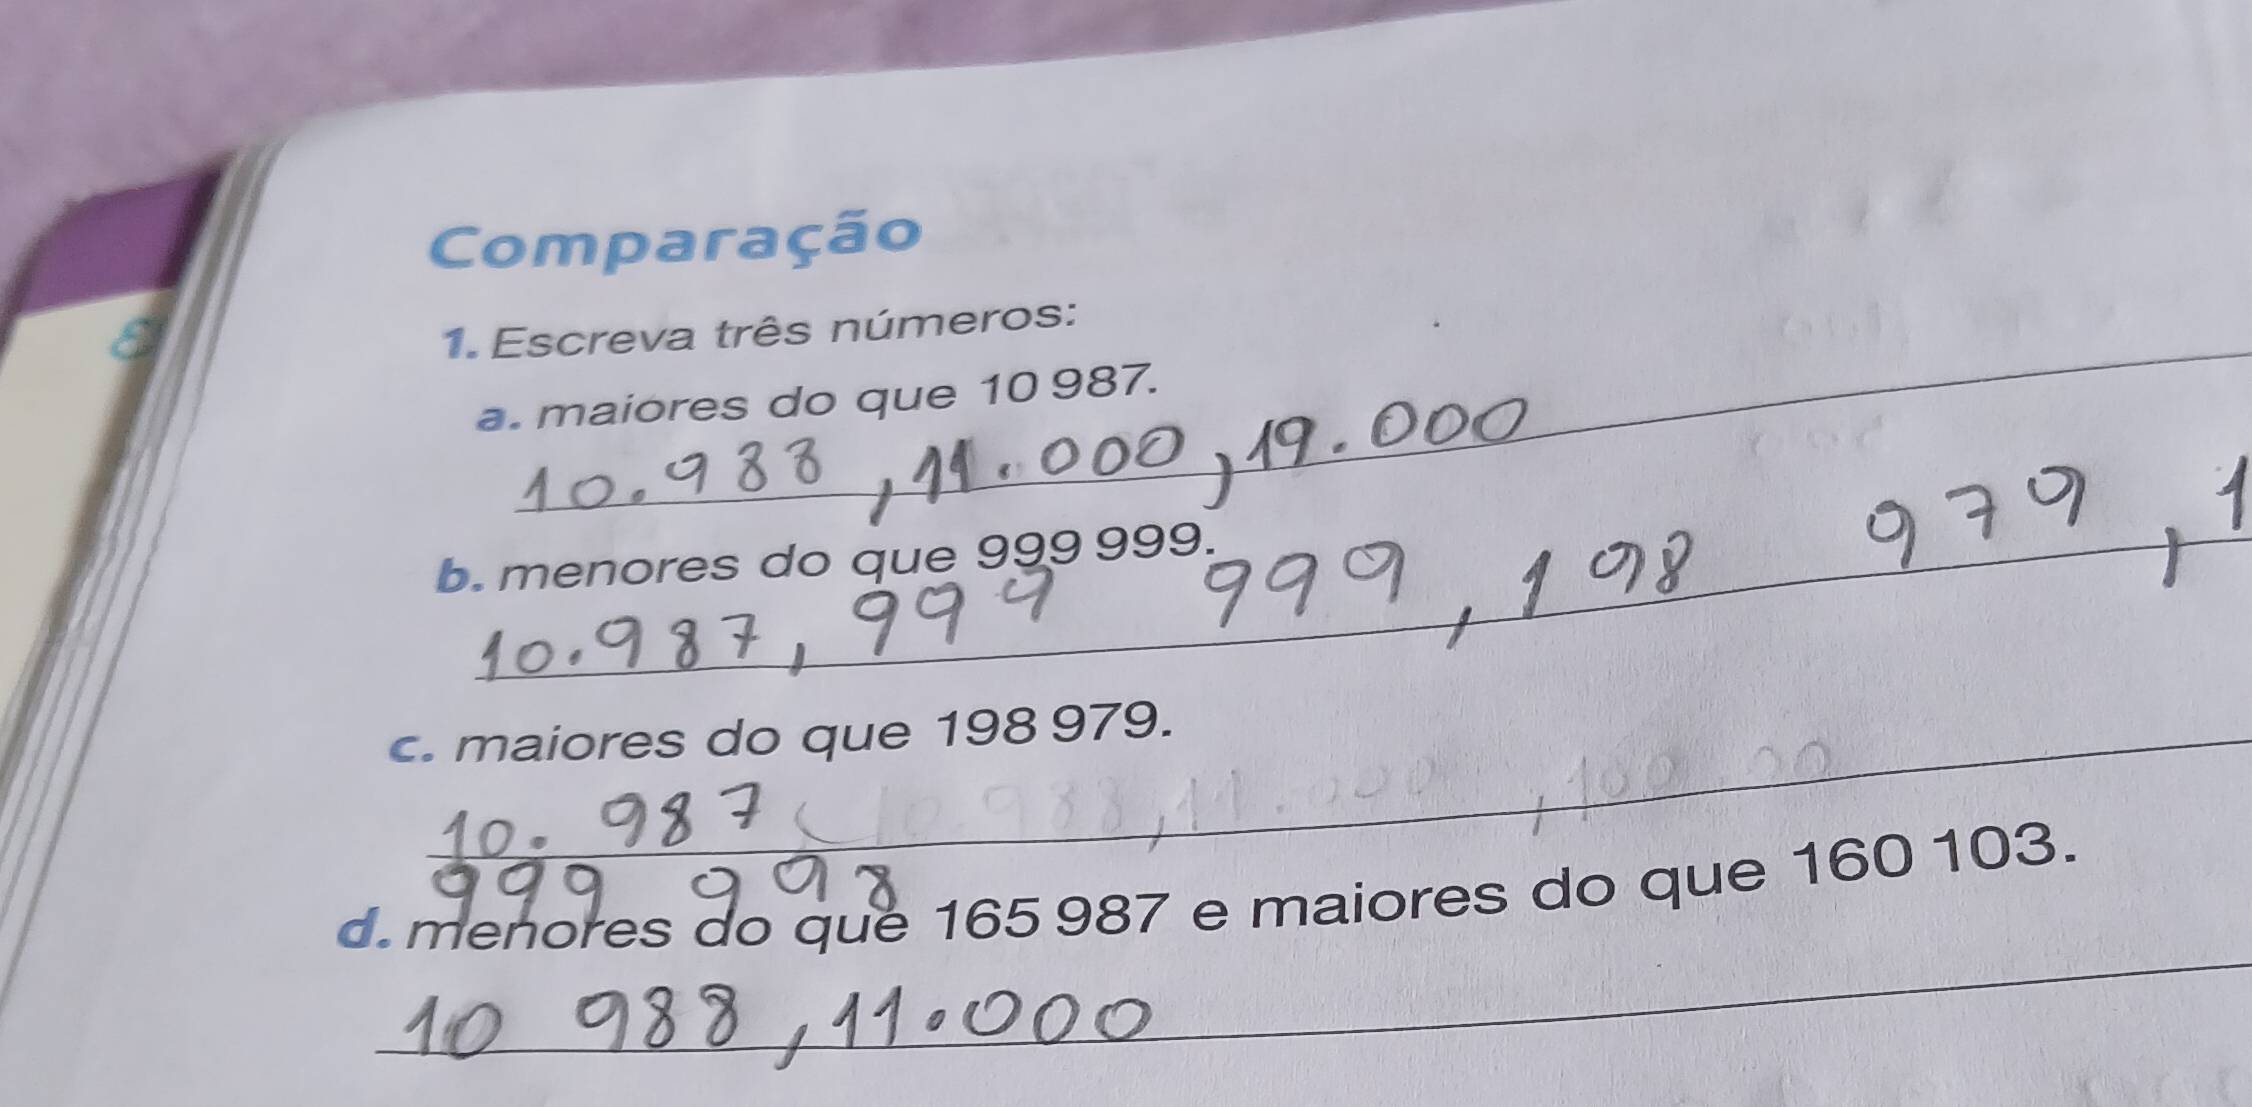 Comparação
1. Escreva três números:
a. maiores do que 10 987.
10.988, 11.000, 19.000
b. menores do que 999 999.
10.987, 999 999, 198 979, 1
c. maiores do que 198 979.
10. 987
999 998
d. menores do que 165 987 e maiores do que 160 103.
10 988, 11.000